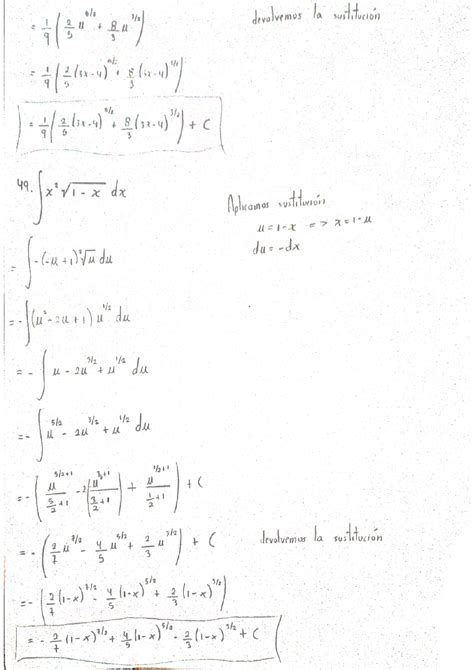 = 1/9 ( 2/5 u^5/2 + 8/3 u^3/2 ) devolvemos la sustitución
= 1/9 ( 2/5 (3x-4)^5/2 + 8/3 (3x-4)^3/2 )
= 1/9 ( 2/5 (3x-4)^5/2 + 8/3 (3x-4)^3/2 ) + C
49. ∫ x² √1-x dx
Aplicamos sustitución
u = 1-x => x = 1-u
du = -dx
= ∫ -(-u+1)² √u du
= -∫ (u² - 2u + 1) u^1/2 du
= -∫ u - 2u^3/2 + u^1/2 du
= -∫ u^5/2 - 2u^3/2 + u^1/2 du
= - ( u^5/2+1 / 5/2+1 - 2( u^3/2+1 / 3/2+1 ) + u^1/2+1 / 1/2+1 ) + C
= - ( 2/7 u^7/2 - 4/5 u^5/2 + 2/3 u^3/2 ) + C devolvemos la sustitución
= - ( 2/7 (1-x)^7/2 - 4/5 (1-x)^5/2 + 2/3 (1-x)^3/2 )
= - 2/7 (1-x)^7/2 + 4/5 (1-x)^5/2 - 2/3 (1-x)^3/2 + C